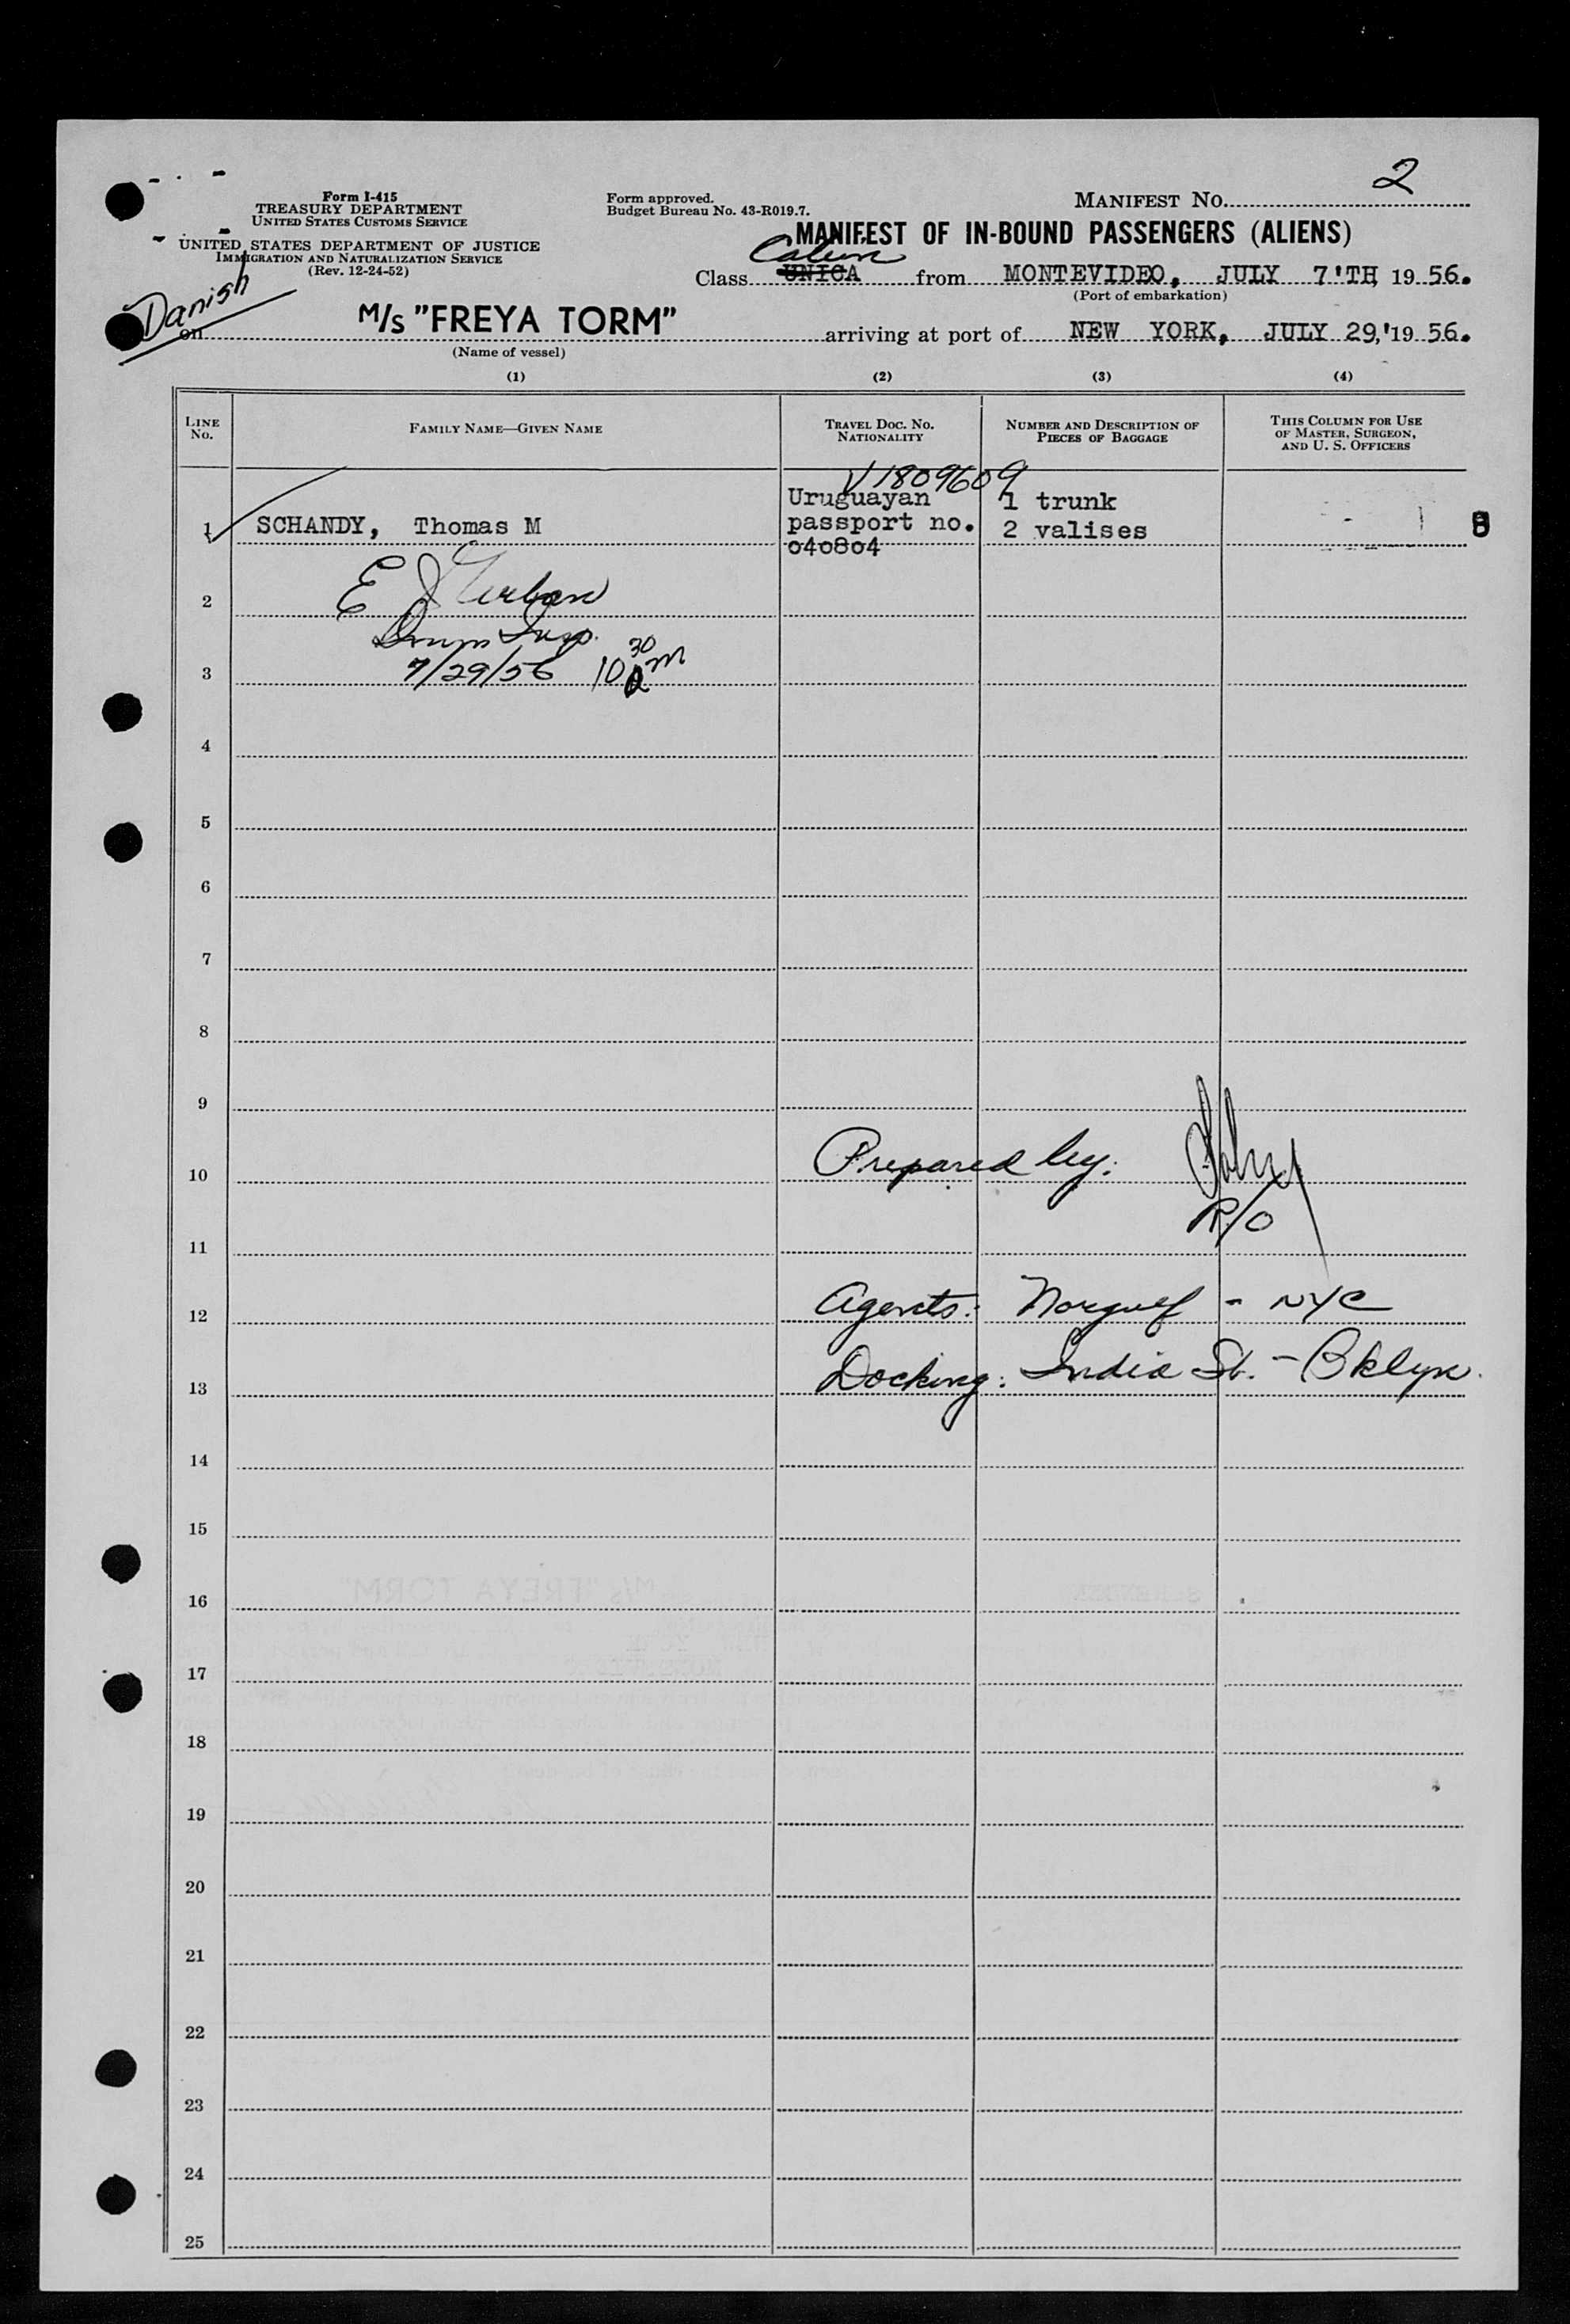 Form I-415
TREASURY DEPARTMENT
UNITED STATES CUSTOMS SERVICE
UNITED STATES DEPARTMENT OF JUSTICE
IMMIGRATION AND NATURALIZATION SERVICE
(Rev. 12-24-52)
Form approved.
Budget Bureau No. 43-R019.7.
MANIFEST NO. 2
MANIFEST OF IN-BOUND PASSENGERS (ALIENS)
Cabin
Class UNICA from MONTEVIDEO, JULY 7'TH 1956.
(Port of embarkation)
Danish
on M/s "FREYA TORM" arriving at port of NEW YORK, JULY 29,'1956.
(Name of vessel)
(1) (2) (3) (4)
LINE NO. FAMILY NAME—GIVEN NAME TRAVEL DOC. NO. NATIONALITY NUMBER AND DESCRIPTION OF PIECES OF BAGGAGE THIS COLUMN FOR USE OF MASTER, SURGEON, AND U. S. OFFICERS
V1809609
Uruguayan 1 trunk
1 SCHANDY, Thomas M passport no. 2 valises 8
040804
2 E J
Insp.
3 7/29/56 10 30 am
4
5
6
7
8
9
10 Prepared by:
R/O
11
12 Agents: Norgulf - NYC
13 Docking: India St. - Bklyn.
14
15
16
17
18
19
20
21
22
23
24
25